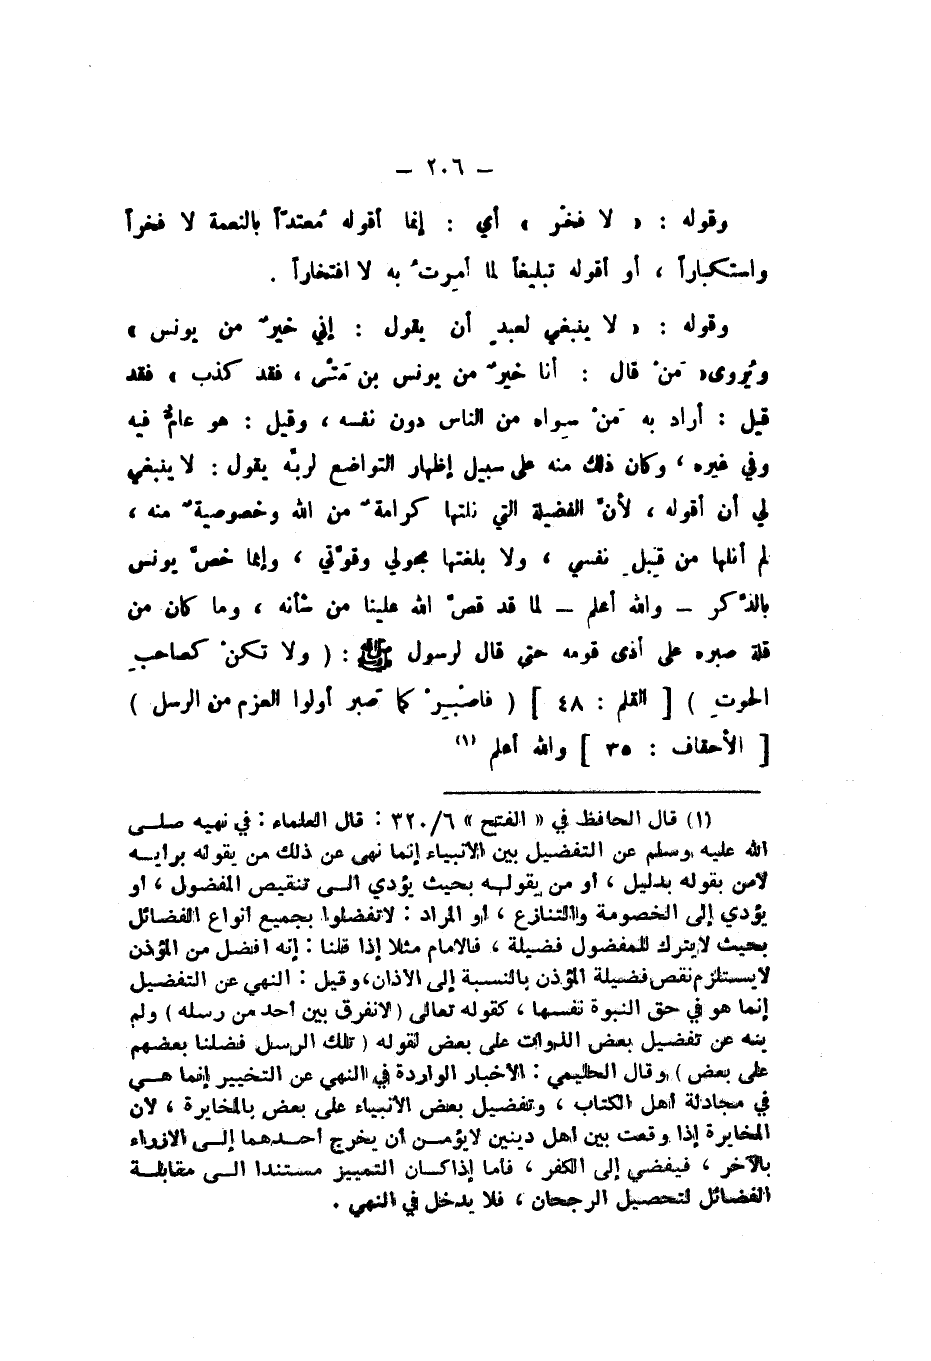 – ٢٠٦ –
وقوله : « لا فخْر » أي : إنما أقوله مُعتدّاً بالنعمة لا فخراً
واستكباراً ، أو أقوله تبليغاً لما أمِرتُ به لا افتخاراً .
وقوله : « لا ينبغي لعبدٍ أن يقول : إني خيرٌ من يونس »
ويُروى« مَنْ قال : أنا خيرٌ من يونس بن مَتّى ، فقد كذب » فقد
قيل : أراد به مَنْ سِواه من الناس دون نفسه ، وقيل : هو عامٌّ فيه
وفي غيره ، وكان ذلك منه على سبيل إظهار التواضع لربّه يقول : لا ينبغي
لي أن أقوله ، لأنّ الفضيلة التي نلتها كرامةٌ من الله وخصوصيةٌ منه ،
لم أنلها من قِبلِ نفسي ، ولا بلغتها بحولي وقوّتي ، وإنما خصّ يونس
بالذّكر – والله أعلم – لما قد قصّ الله علينا من شأنه ، وما كان من
قلة صبره على أذى قومه حتى قال لرسول ﷺ : ( ولا تكنْ كصاحبِ
الحوتِ ) [ القلم : ٤٨ ] ( فاصْبِرْ كما صَبر أولوا العزم من الرسل )
[ الأحقاف : ٣٥ ] والله أعلم (١)
(١) قال الحافظ في « الفتح » ٣٢٠/٦ : قال العلماء : في نهيه صلى
الله عليه وسلم عن التفضيل بين الأنبياء إنما نهى عن ذلك من يقوله برايه
لامن بقوله بدليل ، أو من يقوله بحيث يؤدي الى تنقيص المفضول ، أو
يؤدي إلى الخصومة والتنازع ، أو المراد : لاتفضلوا بجميع أنواع الفضائل
بحيث لايترك للمفضول فضيلة ، فالامام مثلا إذا قلنا : إنه افضل من المؤذن
لايستلزم نقص فضيلة المؤذن بالنسبة إلى الاذان، وقيل : النهي عن التفضيل
إنما هو في حق النبوة نفسها ، كقوله تعالى ( لانفرق بين أحد من رسله ) ولم
ينه عن تفضيل بعض الذوات على بعض لقوله ( تلك الرسل فضلنا بعضهم
على بعض ) وقال الحليمي : الأخبار الواردة في النهي عن التخيير إنما هي
في مجادلة أهل الكتاب ، وتفضيل بعض الأنبياء على بعض بالمخايرة ، لأن
المخايرة إذا وقعت بين أهل دينين لايؤمن أن يخرج أحدهما إلى الازراء
بالآخر ، فيفضي إلى الكفر ، فأما إذاكان التمييز مستندا الى مقابلة
الفضائل لتحصيل الرجحان ، فلا يدخل في النهي .